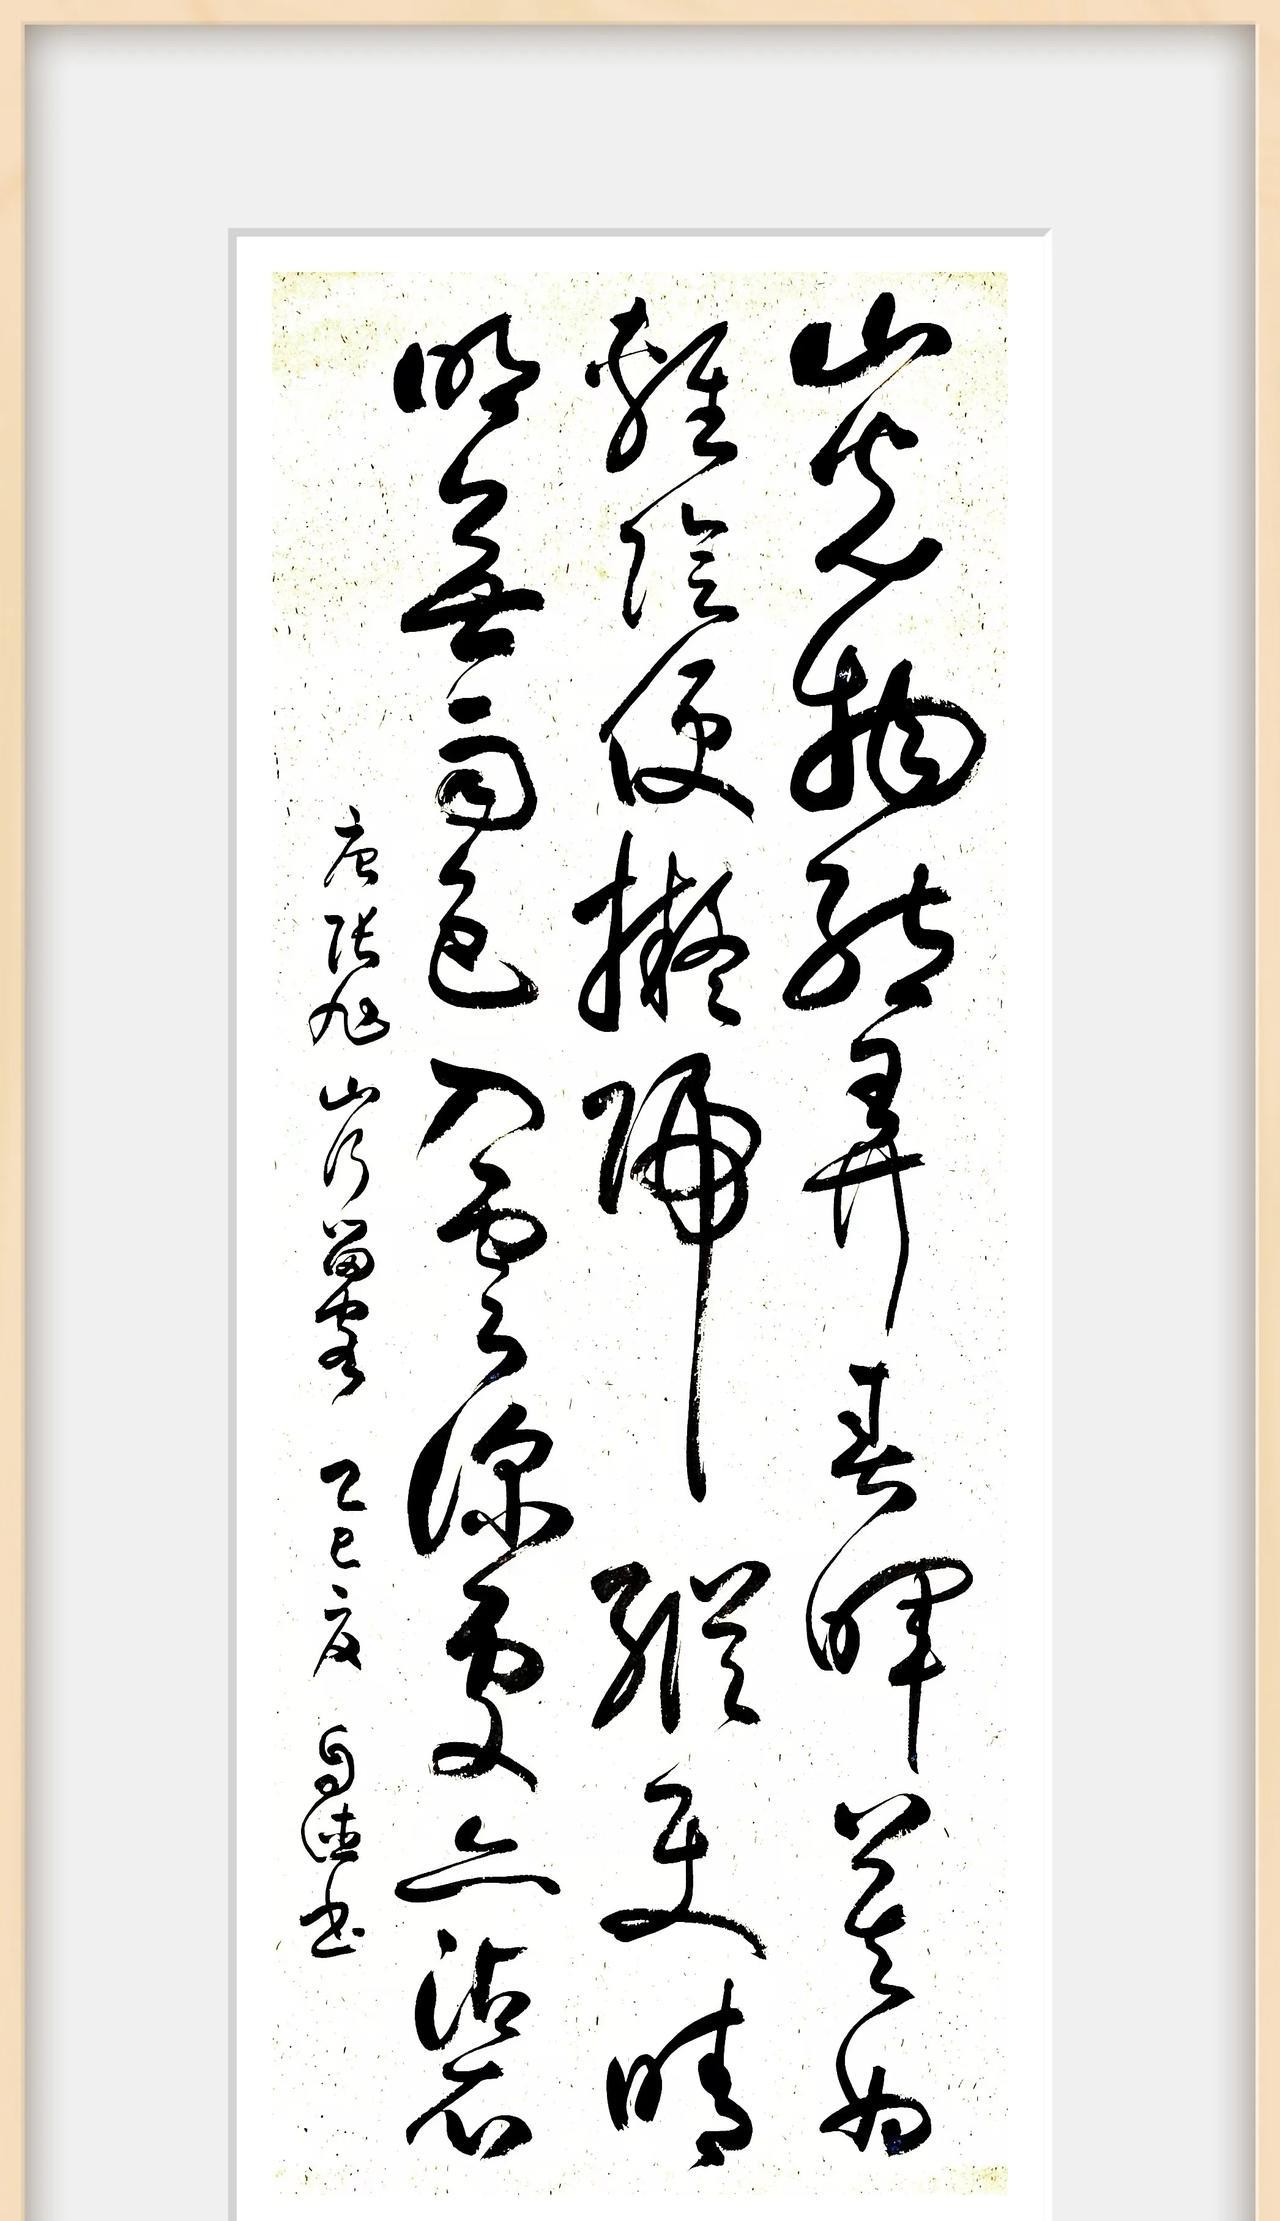 山光物態弄春暉莫為
輕陰便擬歸縱使晴
明無雨色入雲深處亦沾衣
唐張旭山行留客 乙巳夏 德书